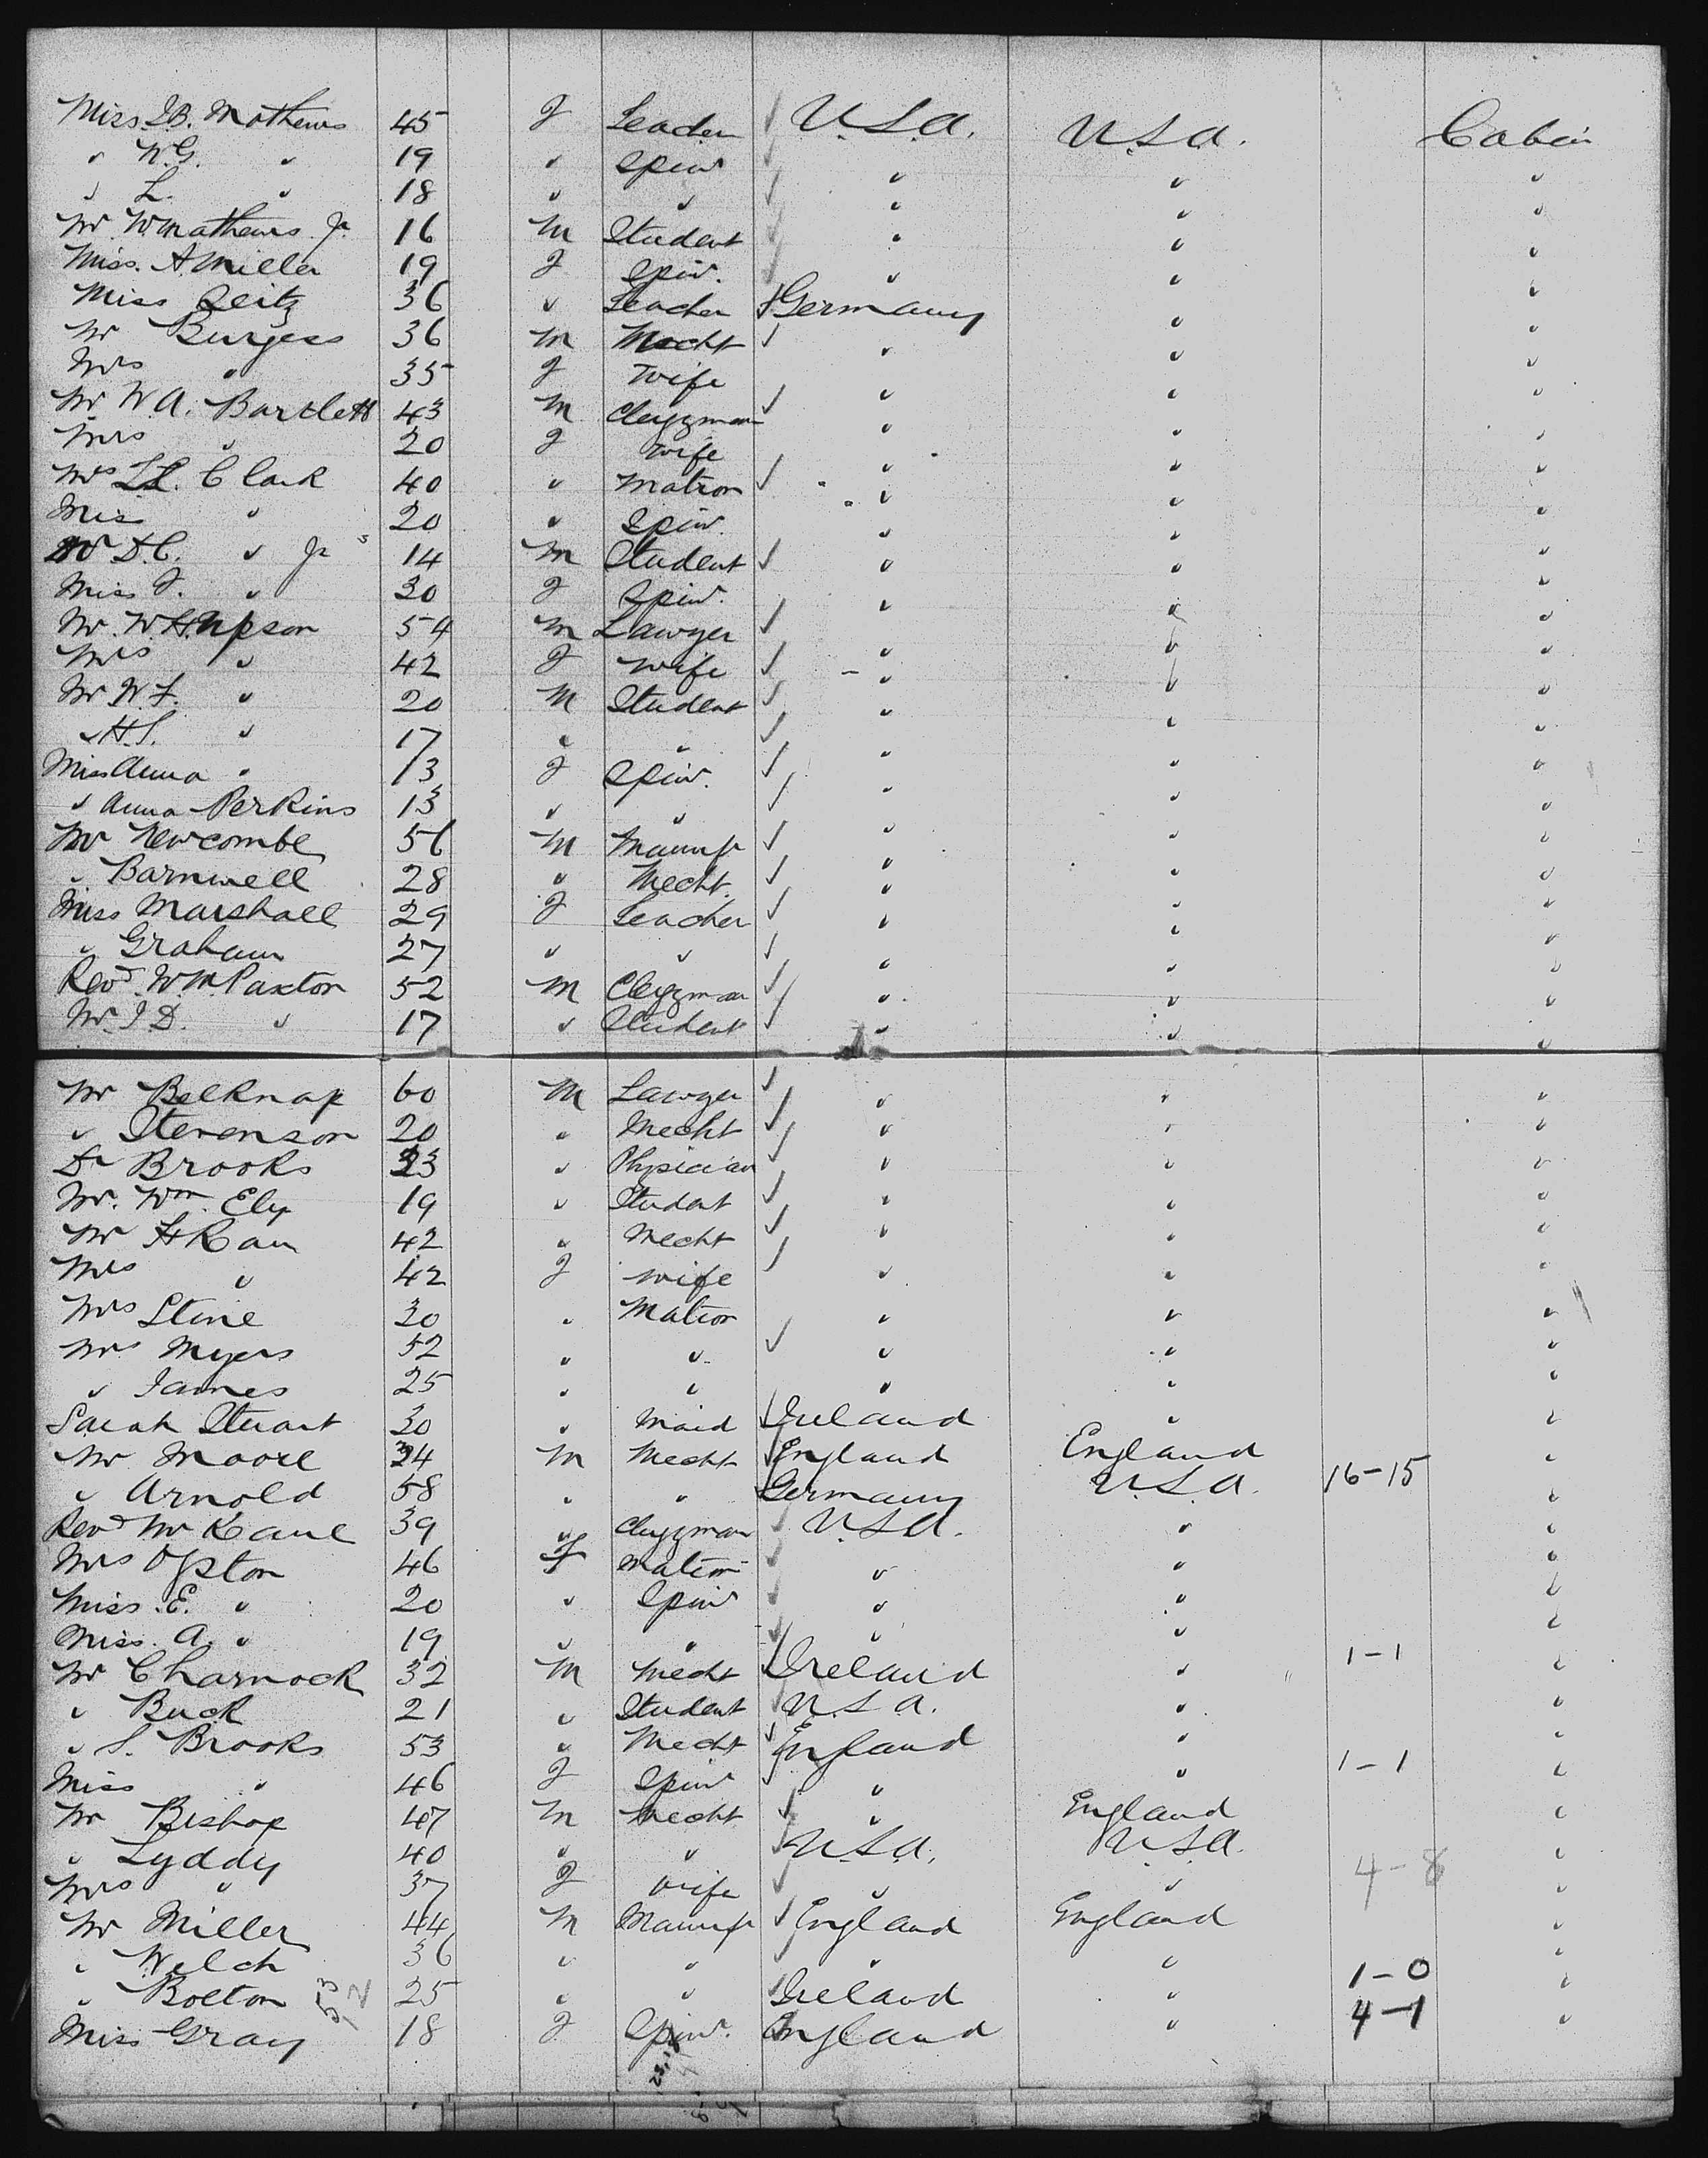 Miss I.B. Mathews 45 F Teacher ✓ U.S.A. U.S.A. Cabin
" W.G. " 19 " Spin ✓ " " "
" L. " 18 " " ✓ " " "
Mr W. Mathews Jr. 16 M Student ✓ " " "
Miss. A. Miller 19 F Spin. ✓ " " "
Miss Seitz 36 " Teacher ✓ Germany " "
Mr Burgess 36 M Mecht ✓ " " "
Mrs " 35 F Wife " " "
Mr W.A. Bartlett 43 M Clergyman ✓ " " "
Mrs " 20 F Wife " " "
Mrs L.L. Clark 40 " Matron ✓ " " "
Miss " 20 " Spin. " " "
Mr D.C. " Jr 14 M Student ✓ " " "
Miss F. " 30 F Spin. " " "
Mr. W.H. Upson 54 M Lawyer ✓ " " "
Mrs " 42 F Wife ✓ " " "
Mr W.F. " 20 M Student ✓ " " "
" H.S. " 17 " " ✓ " " "
Miss Anna " 13 F Spin. ✓ " " "
" Anna Perkins 13 " " ✓ " " "
Mr Newcombe 56 M Manufr ✓ " " "
" Barnwell 28 " Mecht. ✓ " " "
Miss Marshall 29 F Teacher ✓ " " "
" Graham 27 " " ✓ " " "
Revd. W.M. Paxton 52 M Clergyman ✓ " " "
Mr. J.D. " 17 " Student ✓ " " "
Mr Belknap 60 M Lawyer ✓ " " "
" Stevenson 20 " Mecht ✓ " " "
Dr Brooks 33 " Physician ✓ " " "
Mr. Wm. Ely 19 " Student ✓ " " "
Mr H Kam 42 " Mecht ✓ " " "
Mrs " 42 F Wife ✓ " " "
Mrs Stine 30 " Matron " " "
Mrs Myers 52 " " ✓ " " "
" James 25 " " " " "
Sarah Stuart 30 " Maid ✓ Ireland " "
Mr Moore 34 M Mecht ✓ England England "
" Arnold 58 " " Germany U.S.A. 16-15 "
Revd Mr Kane 39 " Clergyman ✓ U.S.A. " "
Mrs Upton 46 F Matron ✓ " " "
Miss. E. " 20 " Spin ✓ " " "
Miss. A. " 19 " " ✓ " " "
Mr Charnock 32 M Mecht ✓ Ireland " 1-1 "
" Buck 21 " Student ✓ U.S.A. " "
" S. Brooks 53 " Mecht ✓ England " "
Miss " 46 F Spin ✓ " " 1-1 "
Mr Bishop 47 M Mecht ✓ " England "
" Lyddy 40 " " ✓ U.S.A. U.S.A. "
Mrs " 37 F Wife ✓ " " 4-8 "
Mr Miller 44 M Manufr ✓ England England "
" Welch 36 " " ✓ " " 1-0 "
" Bolton 25 " " ✓ Ireland " 4-1 "
Miss Gray 18 F Spin. England " "